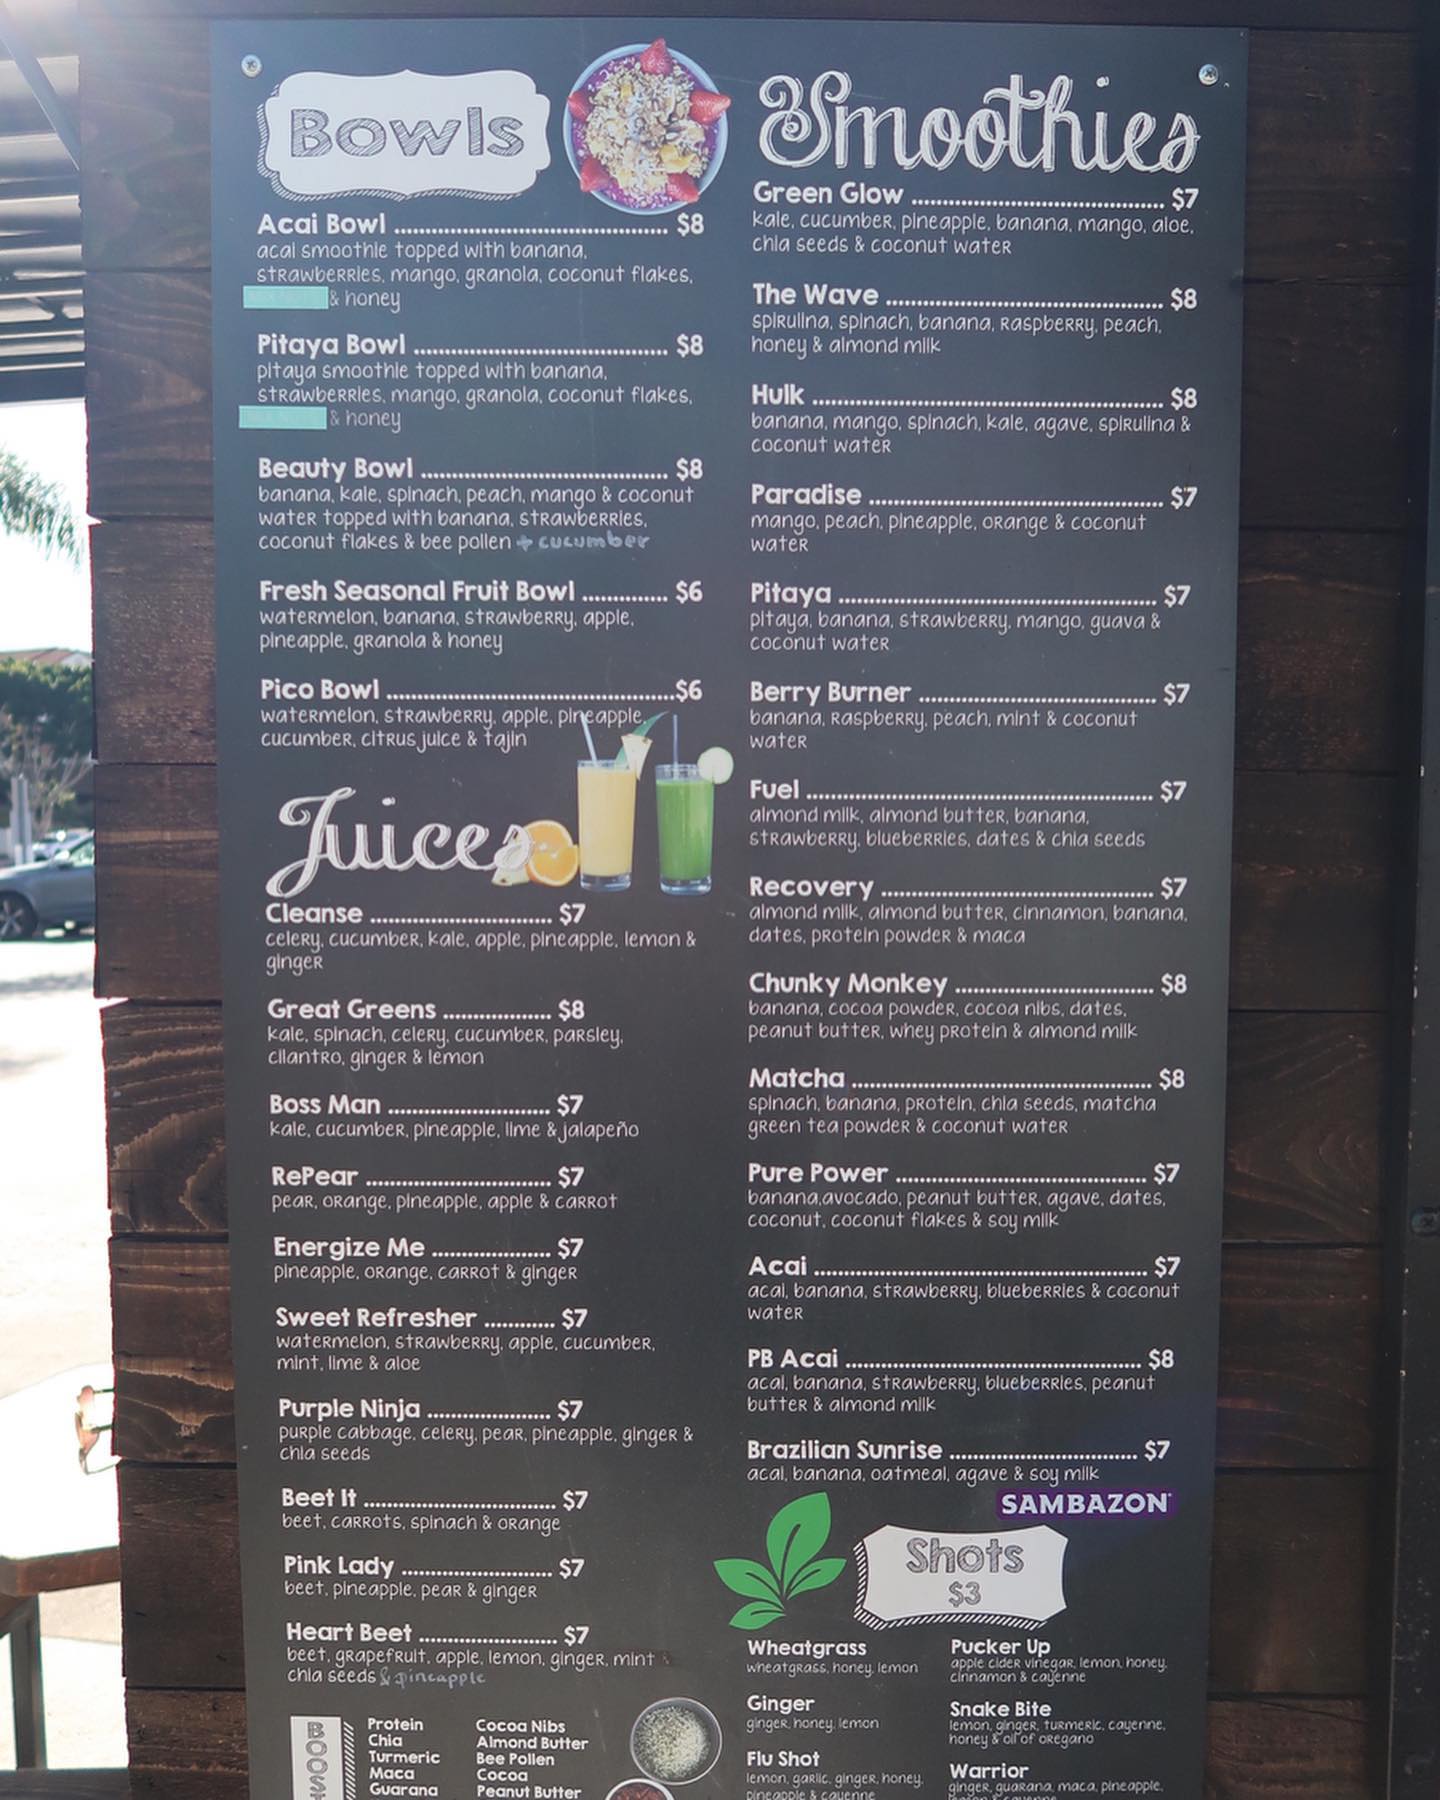 Bowls
Acai Bowl ........................................ $8
acai smoothie topped with banana,
strawberries, mango, granola, coconut flakes,
& honey
Pitaya Bowl ..................................... $8
pitaya smoothie topped with banana,
strawberries, mango, granola, coconut flakes,
& honey
Beauty Bowl .................................... $8
banana, kale, spinach, peach, mango & coconut
water topped with banana, strawberries,
coconut flakes & bee pollen + cucumber
Fresh Seasonal Fruit Bowl ............ $6
watermelon, banana, strawberry, apple,
pineapple, granola & honey
Pico Bowl ..........................................$6
watermelon, strawberry, apple, pineapple,
cucumber, citrus juice & tajin
Juices
Cleanse .......................... $7
celery, cucumber, kale, apple, pineapple, lemon &
ginger
Great Greens ............... $8
kale, spinach, celery, cucumber, parsley,
cilantro, ginger & lemon
Boss Man ....................... $7
kale, cucumber, pineapple, lime & jalapeño
RePear .......................... $7
pear, orange, pineapple, apple & carrot
Energize Me ................. $7
pineapple, orange, carrot & ginger
Sweet Refresher .......... $7
watermelon, strawberry, apple, cucumber,
mint, lime & aloe
Purple Ninja ................. $7
purple cabbage, celery, pear, pineapple, ginger &
chia seeds
Beet It ........................... $7
beet, carrots, spinach & orange
Pink Lady ..................... $7
beet, pineapple, pear & ginger
Heart Beet ................... $7
beet, grapefruit, apple, lemon, ginger, mint &
chia seeds & pineapple
BOOST
Protein
Chia
Turmeric
Maca
Guarana
Cocoa Nibs
Almond Butter
Bee Pollen
Cocoa
Peanut Butter
Smoothies
Green Glow ..................................... $7
kale, cucumber, pineapple, banana, mango, aloe,
chia seeds & coconut water
The Wave ........................................ $8
spirulina, spinach, banana, raspberry, peach,
honey & almond milk
Hulk .................................................. $8
banana, mango, spinach, kale, agave, spirulina &
coconut water
Paradise .......................................... $7
mango, peach, pineapple, orange & coconut
water
Pitaya .............................................. $7
pitaya, banana, strawberry, mango, guava &
coconut water
Berry Burner .................................. $7
banana, raspberry, peach, mint & coconut
water
Fuel .................................................. $7
almond milk, almond butter, banana,
strawberry, blueberries, dates & chia seeds
Recovery ........................................ $7
almond milk, almond butter, cinnamon, banana,
dates, protein powder & maca
Chunky Monkey ............................. $8
banana, cocoa powder, cocoa nibs, dates,
peanut butter, whey protein & almond milk
Matcha ........................................... $8
spinach, banana, protein, chia seeds, matcha
green tea powder & coconut water
Pure Power .................................... $7
banana,avocado, peanut butter, agave, dates,
coconut, coconut flakes & soy milk
Acai ................................................. $7
acai, banana, strawberry, blueberries & coconut
water
PB Acai ........................................... $8
acai, banana, strawberry, blueberries, peanut
butter & almond milk
Brazilian Sunrise ........................... $7
acai, banana, oatmeal, agave & soy milk
SAMBAZON
Shots
$3
Wheatgrass
wheatgrass, honey, lemon
Ginger
ginger, honey, lemon
Flu Shot
lemon, garlic, ginger, honey,
pineapple & cayenne
Pucker Up
apple cider vinegar, lemon, honey,
cinnamon & cayenne
Snake Bite
lemon, ginger, turmeric, cayenne,
honey & oil of oregano
Warrior
ginger, guarana, maca, pineapple,